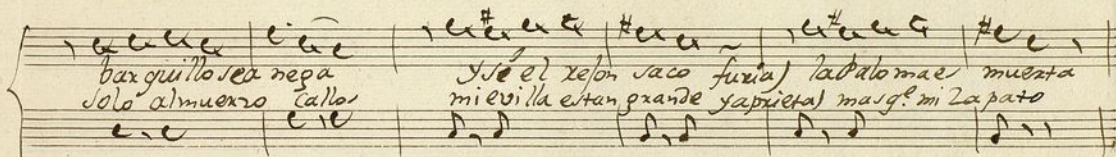 barquillo sea nega y sè el rejon saco furia) la Paloma es muerta
solo almuerzo Callos mi evilla es tan grande y aprieta) mas q.e mi Zapato